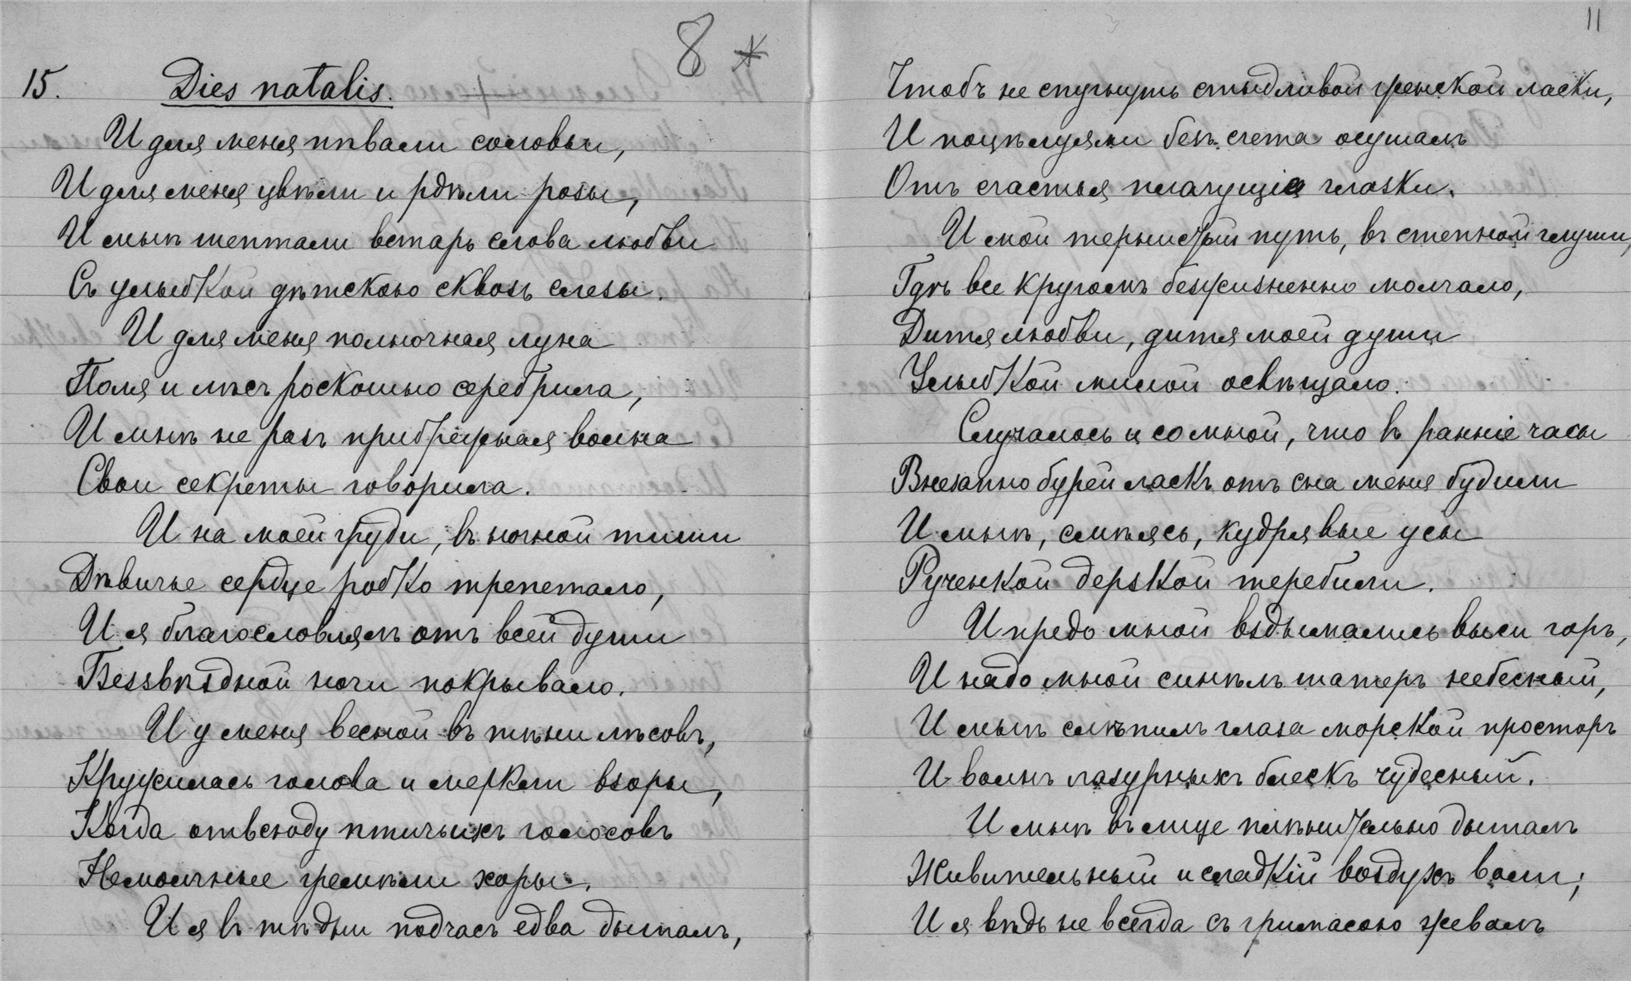 8 *
15. Dies natalis.
И для меня пѣвали соловьи,
И для меня цвѣли и рдѣли розы,
И мнѣ шептали встарь слова любви
Съ улыбкой дѣтскою сквозь слезы.
И для меня полночная луна
Поля и лѣсъ роскошно серебрила,
И мнѣ не разъ прибрежная волна
Свои секреты говорила.
И на моей груди, въ ночной тиши
Дѣвичье сердце робко трепетало,
И я благословлялъ отъ всей души
Беззвѣздной ночи покрывало.
И у меня весной въ тѣни лѣсовъ,
Кружилась голова и меркли взоры,
Когда отвсюду птичьихъ голосовъ
Немолчные гремѣли хоры.
И я въ тѣ дни подчасъ едва дышалъ,
11
Чтобъ не спугнуть стыдливой женской ласки,
И поцѣлуями безъ счета осушалъ
Отъ счастья плачущіе глазки.
И мой тернистый путь, въ степной глуши,
Гдѣ все кругомъ безжизненно молчало,
Дитя любви, дитя моей души
Улыбкой милой освѣщало.
Случалось и со мной, что въ ранніе часы
Внезапно бурей ласкъ отъ сна меня будили
И мнѣ, смѣясь, кудрявые усы
Рученкой дерзкой теребили.
И предо мной вздымались выси горъ,
И надо мной синѣлъ шатеръ небесный,
И мнѣ слѣпилъ глаза морской просторъ
И волнъ лазурныхъ блескъ чудесный.
И мнѣ въ лице плѣнительно дышалъ
Живительный и сладкій воздухъ воли;
И я вѣдь не всегда съ гримасою жевалъ